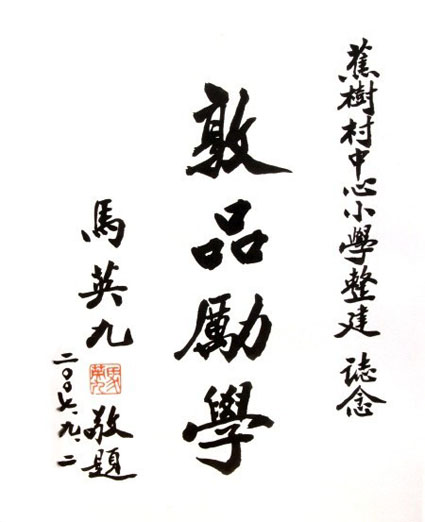 蕉樹村中心小學整建 誌念
敦品勵學
馬英九 敬題
二〇〇六.九.二